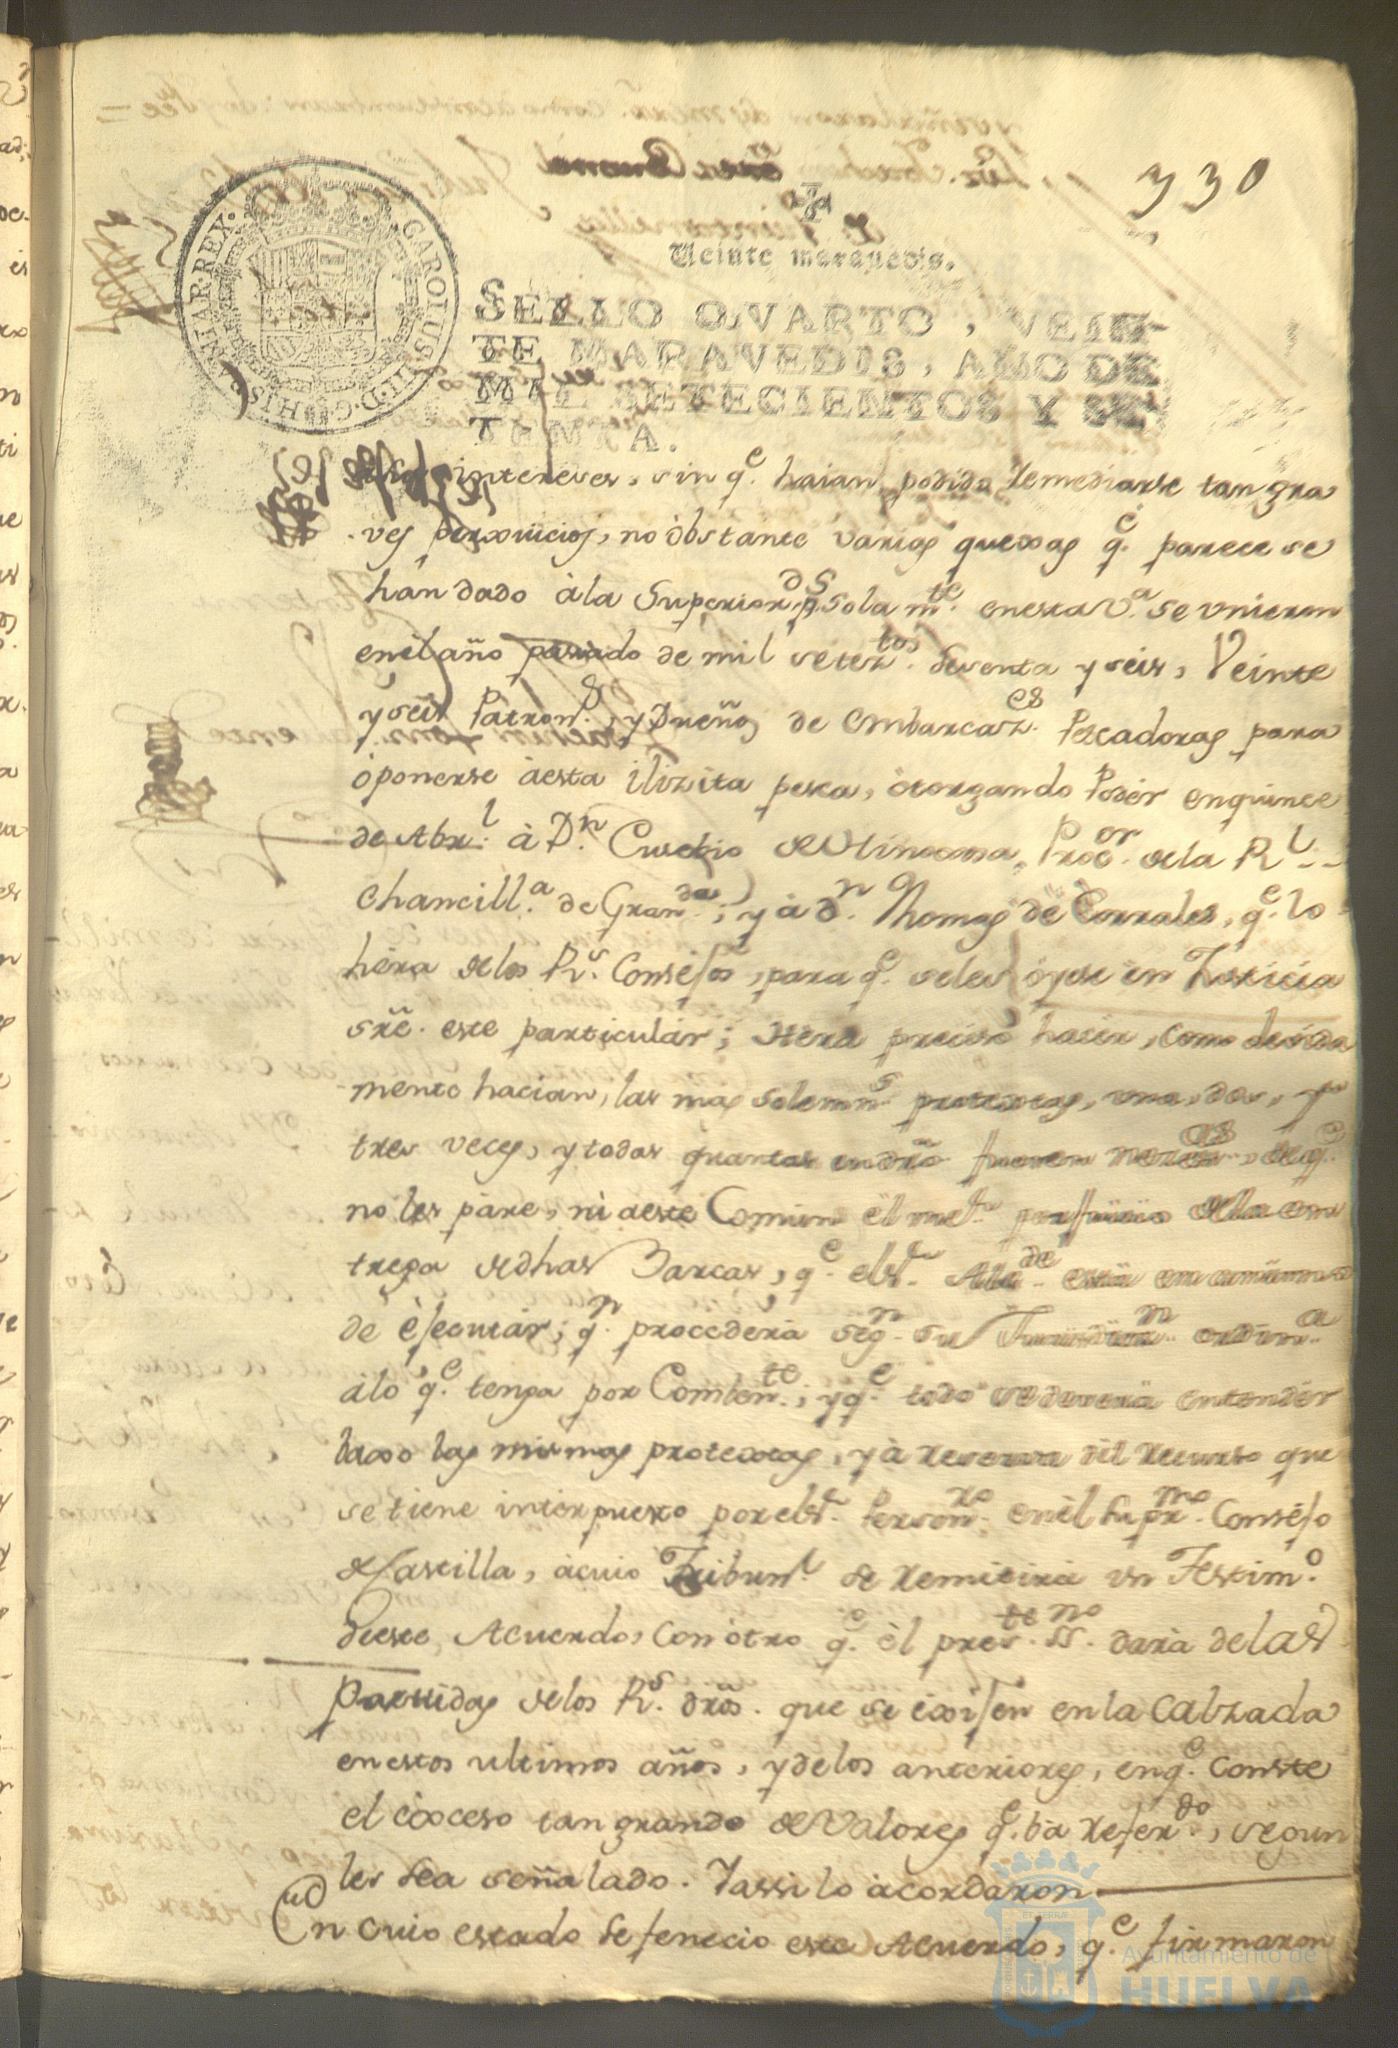 330
Veinte maravedis.
SELLO QVARTO, VEIN-
TE MARAVEDIS, AÑO DE
MIL SETECIENTOS Y SE-
TENTA.
CAROLUS III D G HISPANIAR REX
intereses, sin q.e haian podido remediarse tan gra
ves perxuicios, no òbstante varias quexas q.e parece se
han dado à la Superior.d ps sola m.te en esta V.a se vnieron
en èl año pasado de mil setez.tos sesenta y seis, Veinte
y seis Patron.s, y Dueños de embarcaz.es Pescadoras para
òponerse à esta ilizita pesca, òtorgando Podèr en quince
de Abr.l à D.n Eusebio de Vinuessa, Proc.or de la R.l
Chancill.a de Gran.da; y à d.n Thomas de Corrales, q.e lo
hèra de los R.s Consejos, para q.e se les òyese en Justicia
sre. este particular; hera preciso hacèr, como devida
mente hacian, las mas solemn.s protextas, vna, dos, y
tres veces, y todas quantas en dro fueren nezes.as, de q.e
no les pare, ni à este Comùn èl me.r perjuicio de la en
trega de dhas Barcas, q.e el S.r Alc.de està en animo
de èjecutàr; q.n procederà seg.n su Jurisdicc.n ordin.a
à lo q.e tenga por Comben.te; y q.e todo se deverà entendèr
baxo las mismas protextas, y à reserva dèl recurso que
se tiene interpuesto por el S.r Person.ro en èl Supr.mo Consèjo
de Castilla, à cuio Tribun.l se remitirà vn Testim.o
de este Acuerdo, con òtro q.e èl pres.te ss.no darà de las
Partidas de los R.s dros. que se èxijen en la Calzada
en estos ultimos años, y de los anteriores, en q.e conste
el èxceso tan grande de Valores q.e ba refer.do, segun
les sea señalado. Y assi lo àcordaron
En cuio estado se fenecio este Acuerdo, q.e firmaron
Ayuntamiento de
HUELVA